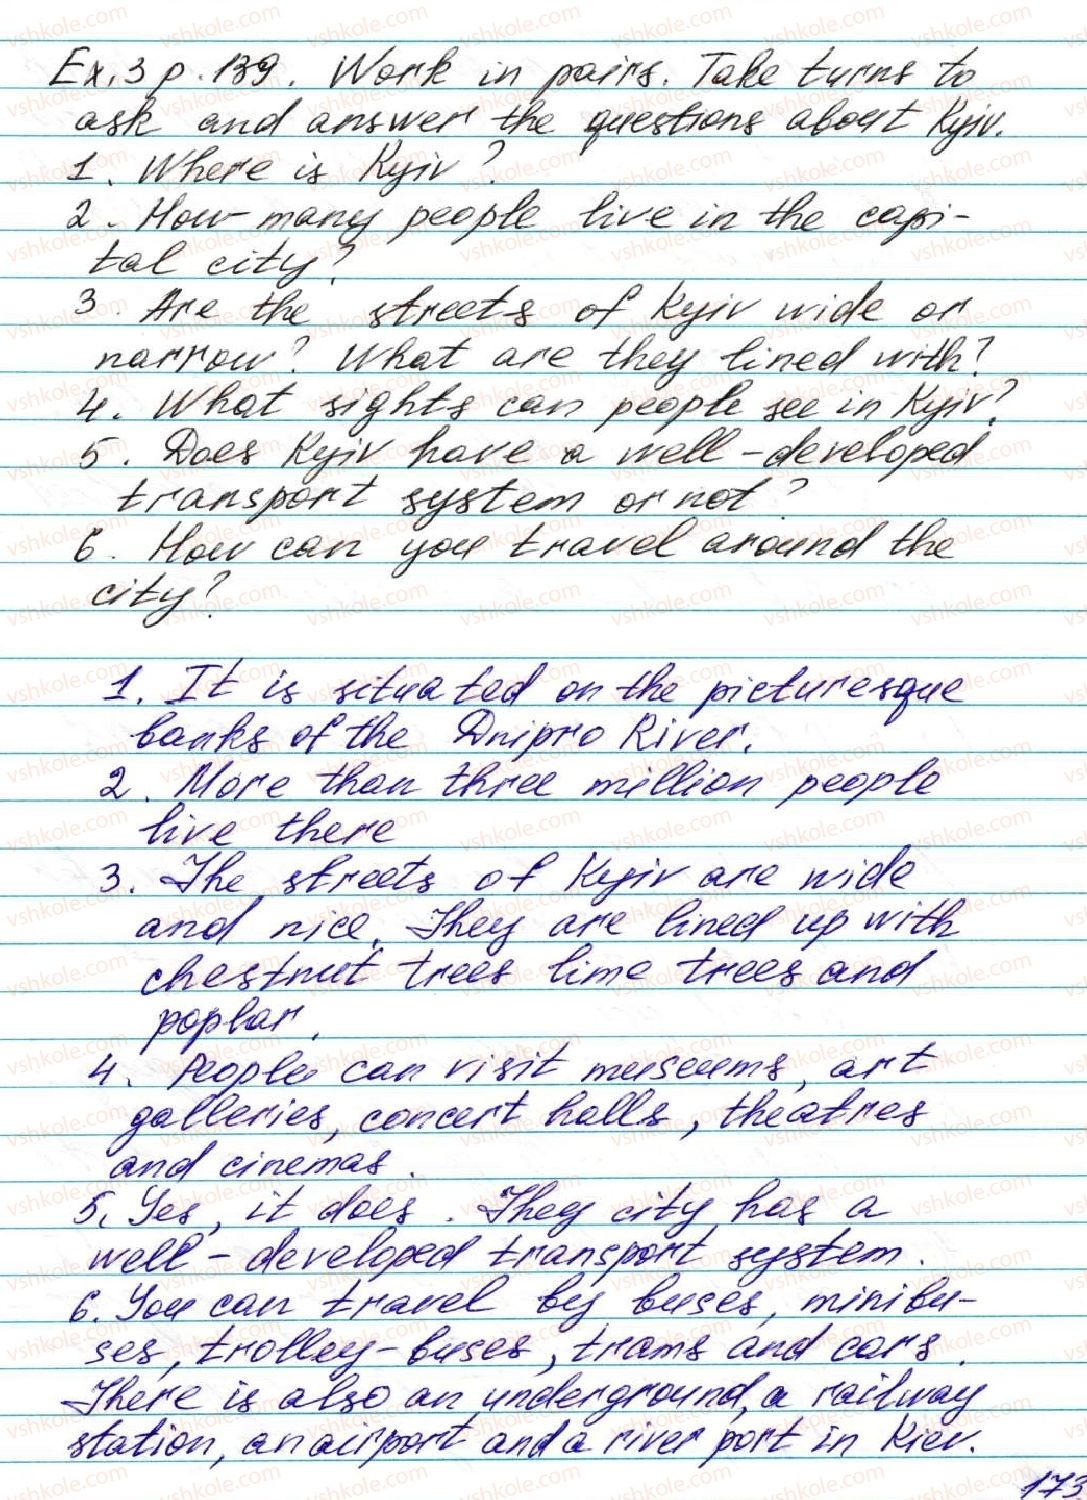 Ex. 3 p. 139. Work in pairs. Take turns to
ask and answer the questions about Kyiv.
1. Where is Kyiv?
2. How many people live in the capi-
tal city?
3. Are the streets of Kyiv wide or
narrow? What are they lined with?
4. What sights can people see in Kyiv?
5. Does Kyiv have a well-developed
transport system or not?
6. How can you travel around the
city?
1. It is situated on the picturesque
banks of the Dnipro River.
2. More than three million people
live there
3. The streets of Kyiv are wide
and nice. They are lined up with
chestnut trees lime trees and
poplar.
4. People can visit museums, art
galleries, concert halls, theatres
and cinemas.
5. Yes, it does. They city has a
well-developed transport system.
6. You can travel by buses, minibu-
ses, trolley-buses, trams and cars.
There is also an underground, a railway
station, an airport and a river port in Kiev.
173
vshkole.com